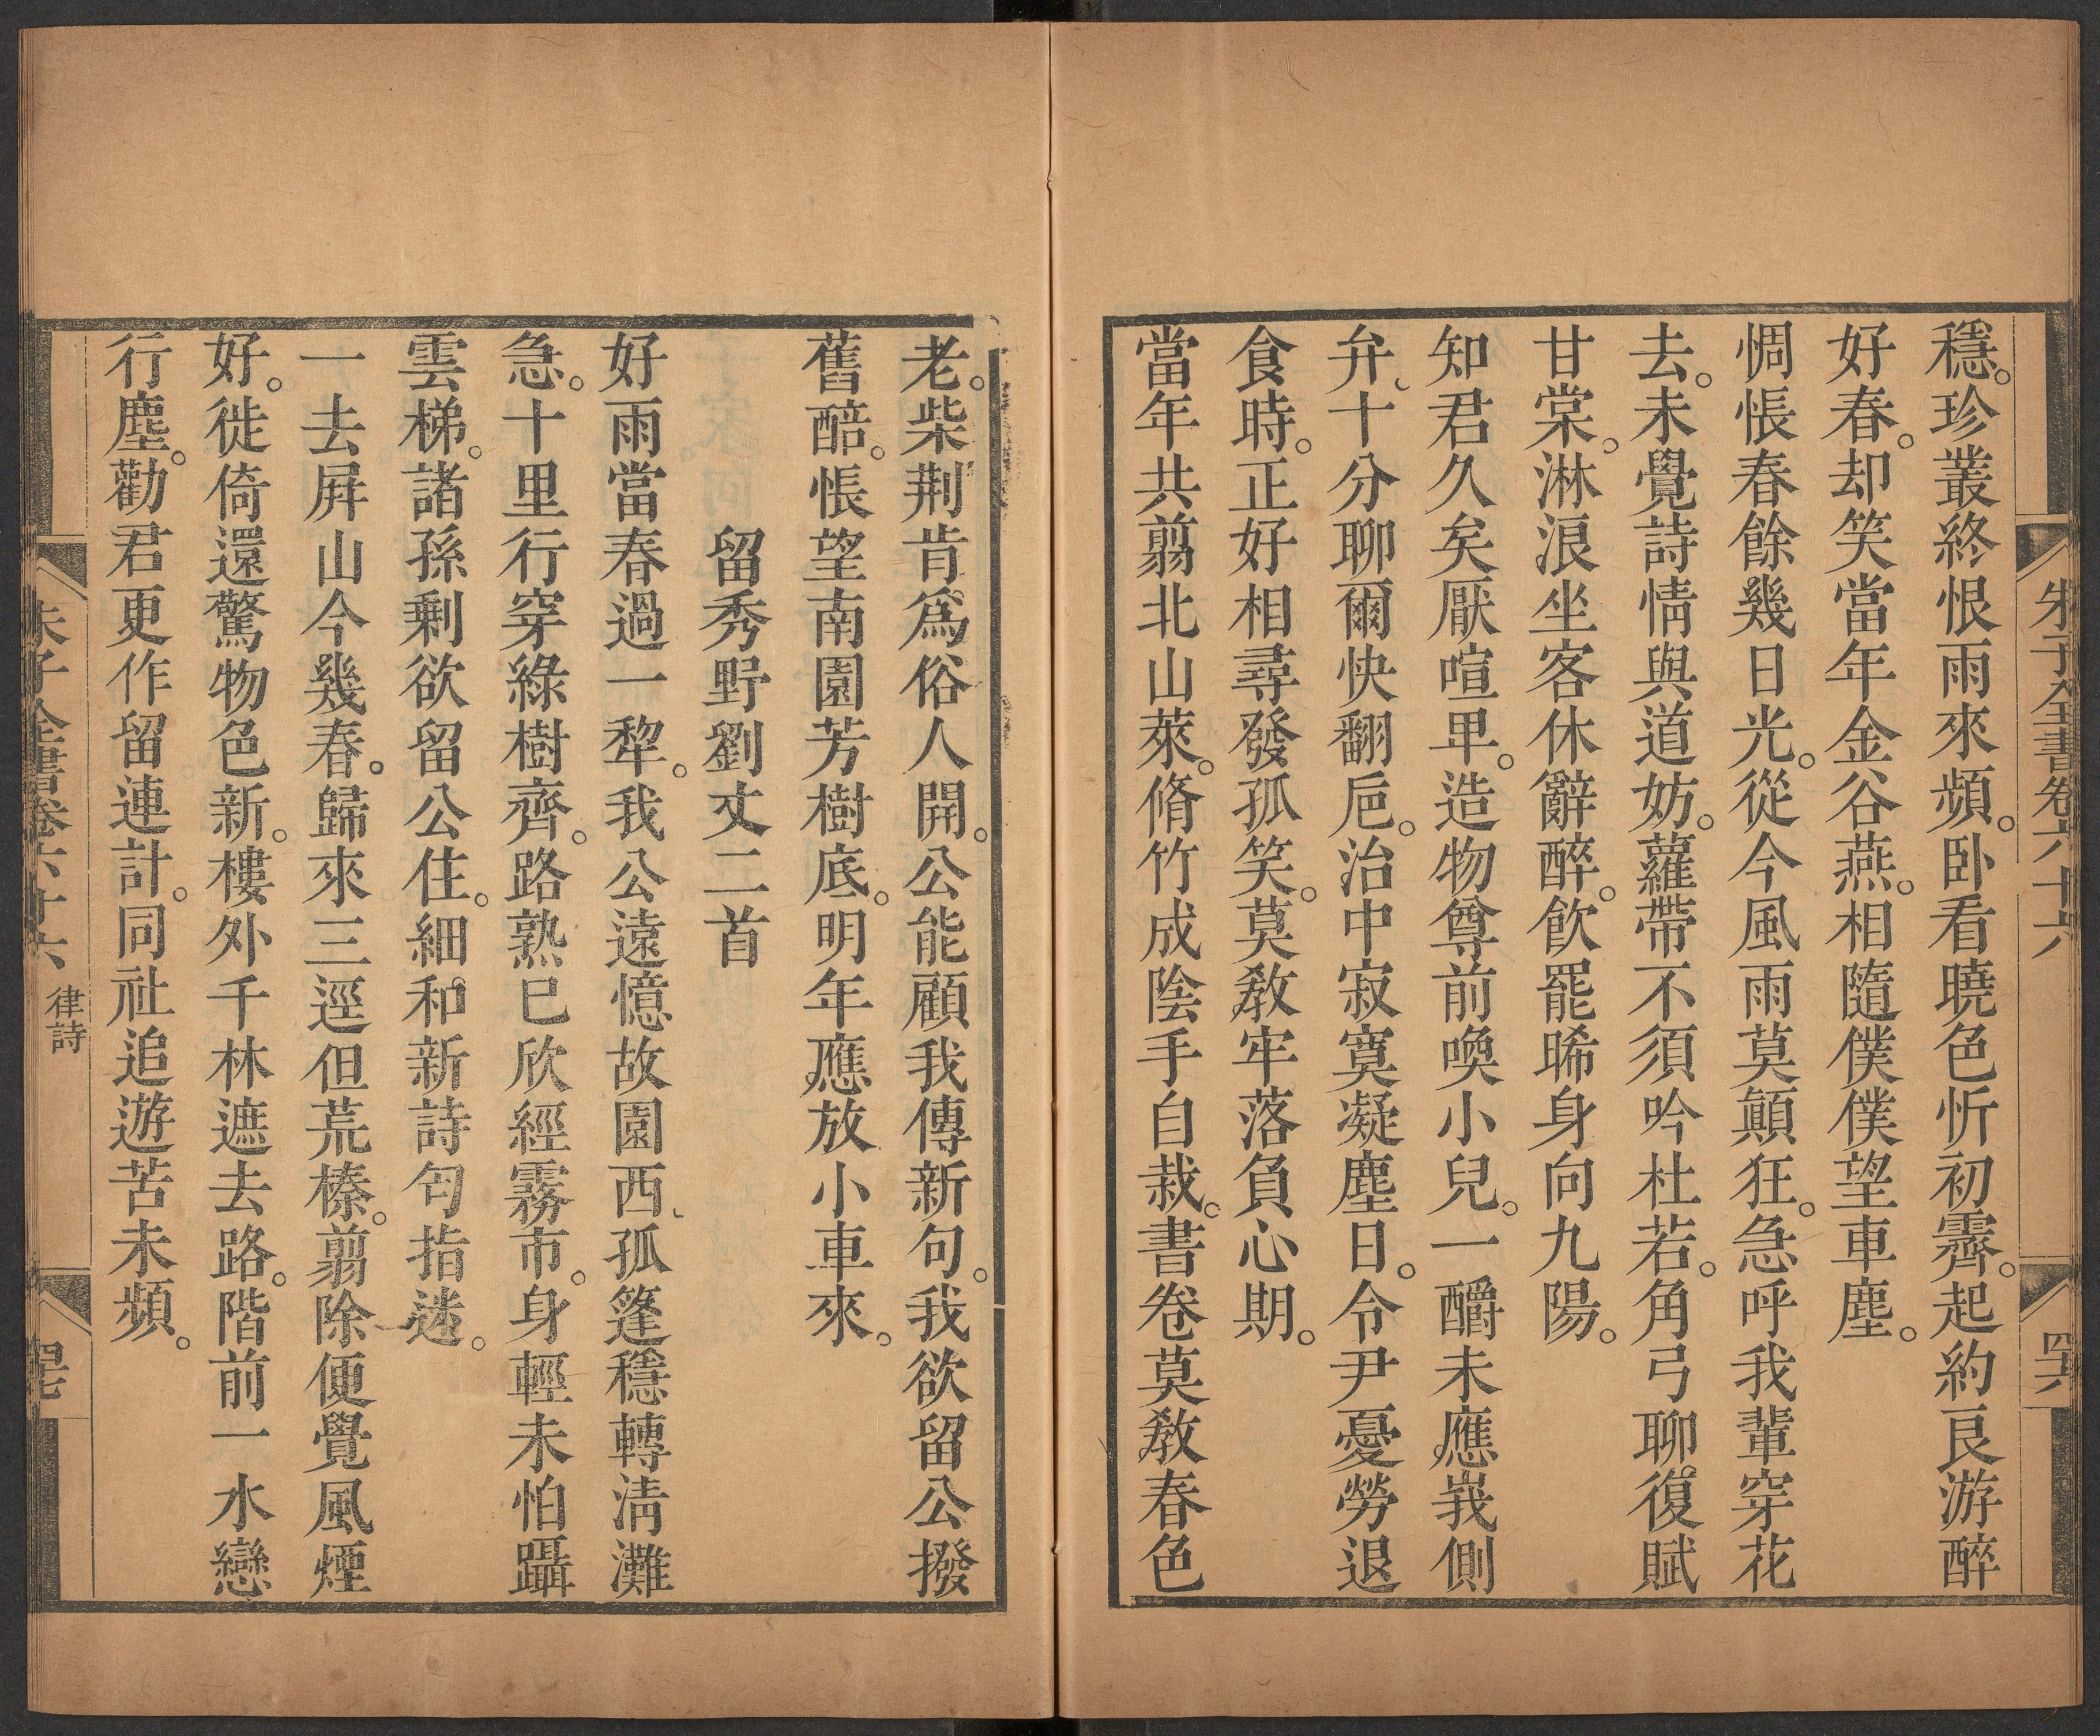 朱子全書卷六十六
四六
穩。珍叢終恨雨來頻。卧看曉色忻初霽。起約良游醉
好春。却笑當年金谷燕。相隨僕僕望車塵。
惆悵春餘幾日光。從今風雨莫顛狂。急呼我輩穿花
去。未覺詩情與道妨。蘿帶不須吟杜若。角弓聊復賦
甘棠。淋浪坐客休辭醉。飲罷晞身向九陽。
知君久矣厭喧卑。造物尊前喚小兒。一釂未應峩側
弁、十分聊爾快翻巵。治中寂寞凝塵日。令尹憂勞退
食時。正好相尋發孤笑。莫敎牢落負心期。
當年共翦北山萊。脩竹成陰手自栽。書卷莫敎春色
老。柴荆肯爲俗人開。公能顧我傳新句。我欲留公撥
舊醅。悵望南園芳樹底。明年應放小車來。
留秀野劉丈二首
好雨當春過一犂。我公遠憶故園西、孤篷穩轉淸灘
急。十里行穿綠樹齊。路熟已欣經霧市。身輕未怕躡
雲梯。諸孫剩欲留公住。細和新詩勻指迷。
一去屛山今幾春。歸來三逕但荒榛。翦除便覺風煙
好。徙倚還驚物色新。樓外千林遮去路。階前一水戀
行塵。勸君更作留連計。同社追遊苦未頻。
朱子全書卷六十六 律詩
四七